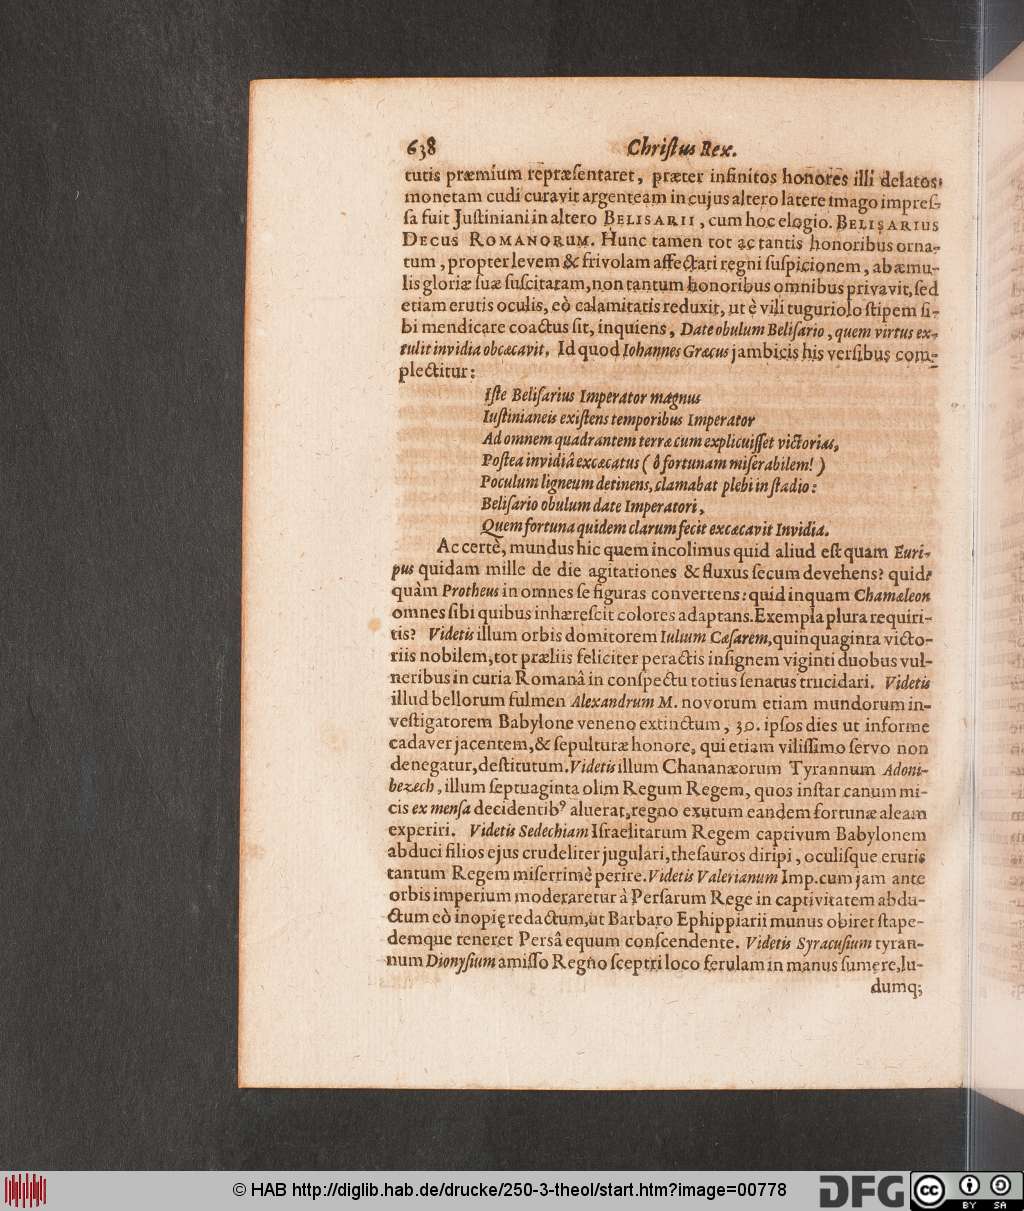 638 Christus Rex.
tutis præmium repræsentaret, præter infinitos honores illi delatos,
monetam cudi curavit argenteam in cujus altero latere imago impres-
sa fuit Justiniani in altero BELISARII, cum hoc elogio. BELISARIUS
DECUS ROMANORUM. Hunc tamen tot ac tantis honoribus orna-
tum, propter levem & frivolam affectati regni suspicionem, ab æmu-
lis gloriæ suæ suscitatam, non tantum honoribus omnibus privavit, sed
etiam erutis oculis, eò calamitatis reduxit, ut è vili tuguriolo stipem si-
bi mendicare coactus sit, inquiens, Date obulum Belisario, quem virtus ex-
tulit invidia obcæcavit. Id quod Iohannes Græcus jambicis his versibus com-
plectitur:
Iste Belisarius Imperator magnus
Iustinianeis existens temporibus Imperator
Ad omnem quadrantem terræ cum explicuisset victorias,
Postea invidiâ excæcatus (ô fortunam miserabilem!)
Poculum ligneum detinens, clamabat plebi in stadio:
Belisario obulum date Imperatori,
Quem fortuna quidem clarum fecit excæcavit Invidia.
Ac certè, mundus hic quem incolimus quid aliud est quam Euri-
pus quidam mille de die agitationes & fluxus secum devehens? quid
quàm Protheus in omnes se figuras convertens: quid inquam Chamæleon
omnes sibi quibus inhærescit colores adaptans. Exempla plura requiri-
tis? Videtis illum orbis domitorem Iulium Cæsarem, quinquaginta victo-
riis nobilem, tot præliis feliciter peractis insignem viginti duobus vul-
neribus in curia Romanâ in conspectu totius senatus trucidari. Videtis
illud bellorum fulmen Alexandrum M. novorum etiam mundorum in-
vestigatorem Babylone veneno extinctum, 30. ipsos dies ut informe
cadaver jacentem, & sepulturæ honore, qui etiam vilissimo servo non
denegatur, destitutum. Videtis illum Chananæorum Tyrannum Adoni-
bezech, illum septuaginta olim Regum Regem, quos instar canum mi-
cis ex mensa decidentibꝰ aluerat, regno exutum eandem fortunæ aleam
experiri. Videtis Sedechiam Israelitarum Regem captivum Babylonem
abduci filios ejus crudeliter jugulari, thesauros diripi, oculisque erutis
tantum Regem miserrimè perire. Videtis Valerianum Imp. cum jam ante
orbis imperium moderaretur à Persarum Rege in captivitatem abdu-
ctum eò inopię redactum, ut Barbaro Ephippiarii munus obiret stape-
demque teneret Persâ equum conscendente. Videtis Syracusium tyran-
num Dionysium amisso Regno sceptri loco ferulam in manus sumere, lu-
dumq;
© HAB http://diglib.hab.de/drucke/250-3-theol/start.htm?image=00778
DFG
cc BY SA